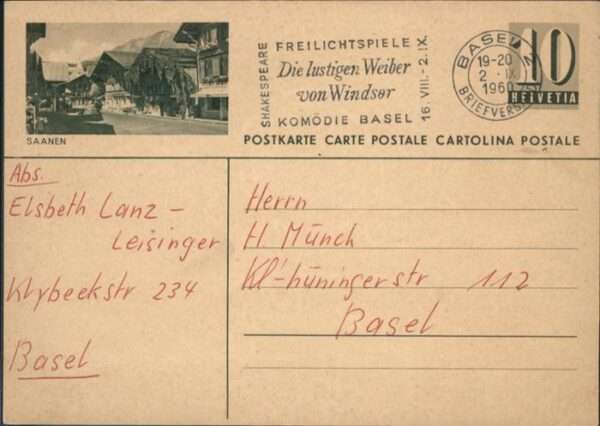 SAANEN
SHAKESPEARE
FREILICHTSPIELE
Die lustigen Weiber
von Windsor
KOMÖDIE BASEL
16. VIII.- 2. IX.
BASEL
19-20
2. IX
196
BRIEFVERS
10
HELVETIA
POSTKARTE CARTE POSTALE CARTOLINA POSTALE
Abs.
Elsbeth Lanz -
Leisinger
Klybeckstr 234
Basel
Herrn
H. Münch
Kl'-hüningerstr 112
Basel